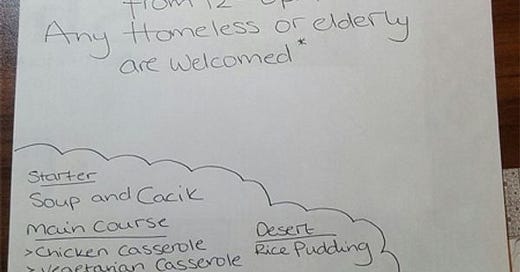 from 12
Any Homeless or elderly
are welcomed*
Starter
Soup and Cacik
Main Course
>Chicken Casserole
>Vegetarian Casserole
Desert
Rice Pudding